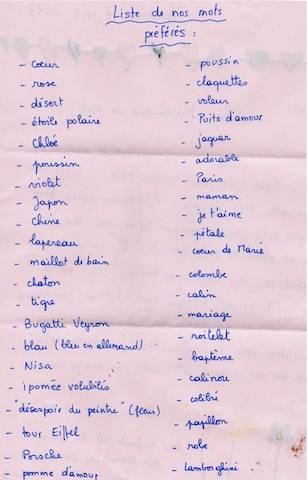 Liste de nos mots
préférés :
- coeur
- rose
- désert
- étoile polaire
- Chloé
- poussin
- violet
- Japon
- Chine
- lapereau
- maillot de bain
- chaton
- tigre
- Bugatti Veyron
- blau (bleu en allemand)
- Nisa
- ipomée volubilis
- "désespoir du peintre" (fleur)
- tour Eiffel
- Porsche
- pomme d'amour
- poussin
- claquettes
- voleur
- Puits d'amour
- jaguar
- adorable
- Paris
- maman
- je t'aime
- pétale
- coeur de Marie
- colombe
- calin
- mariage
- roitelet
- baptême
- calinou
- colibri
- papillon
- robe
- Lamborghini